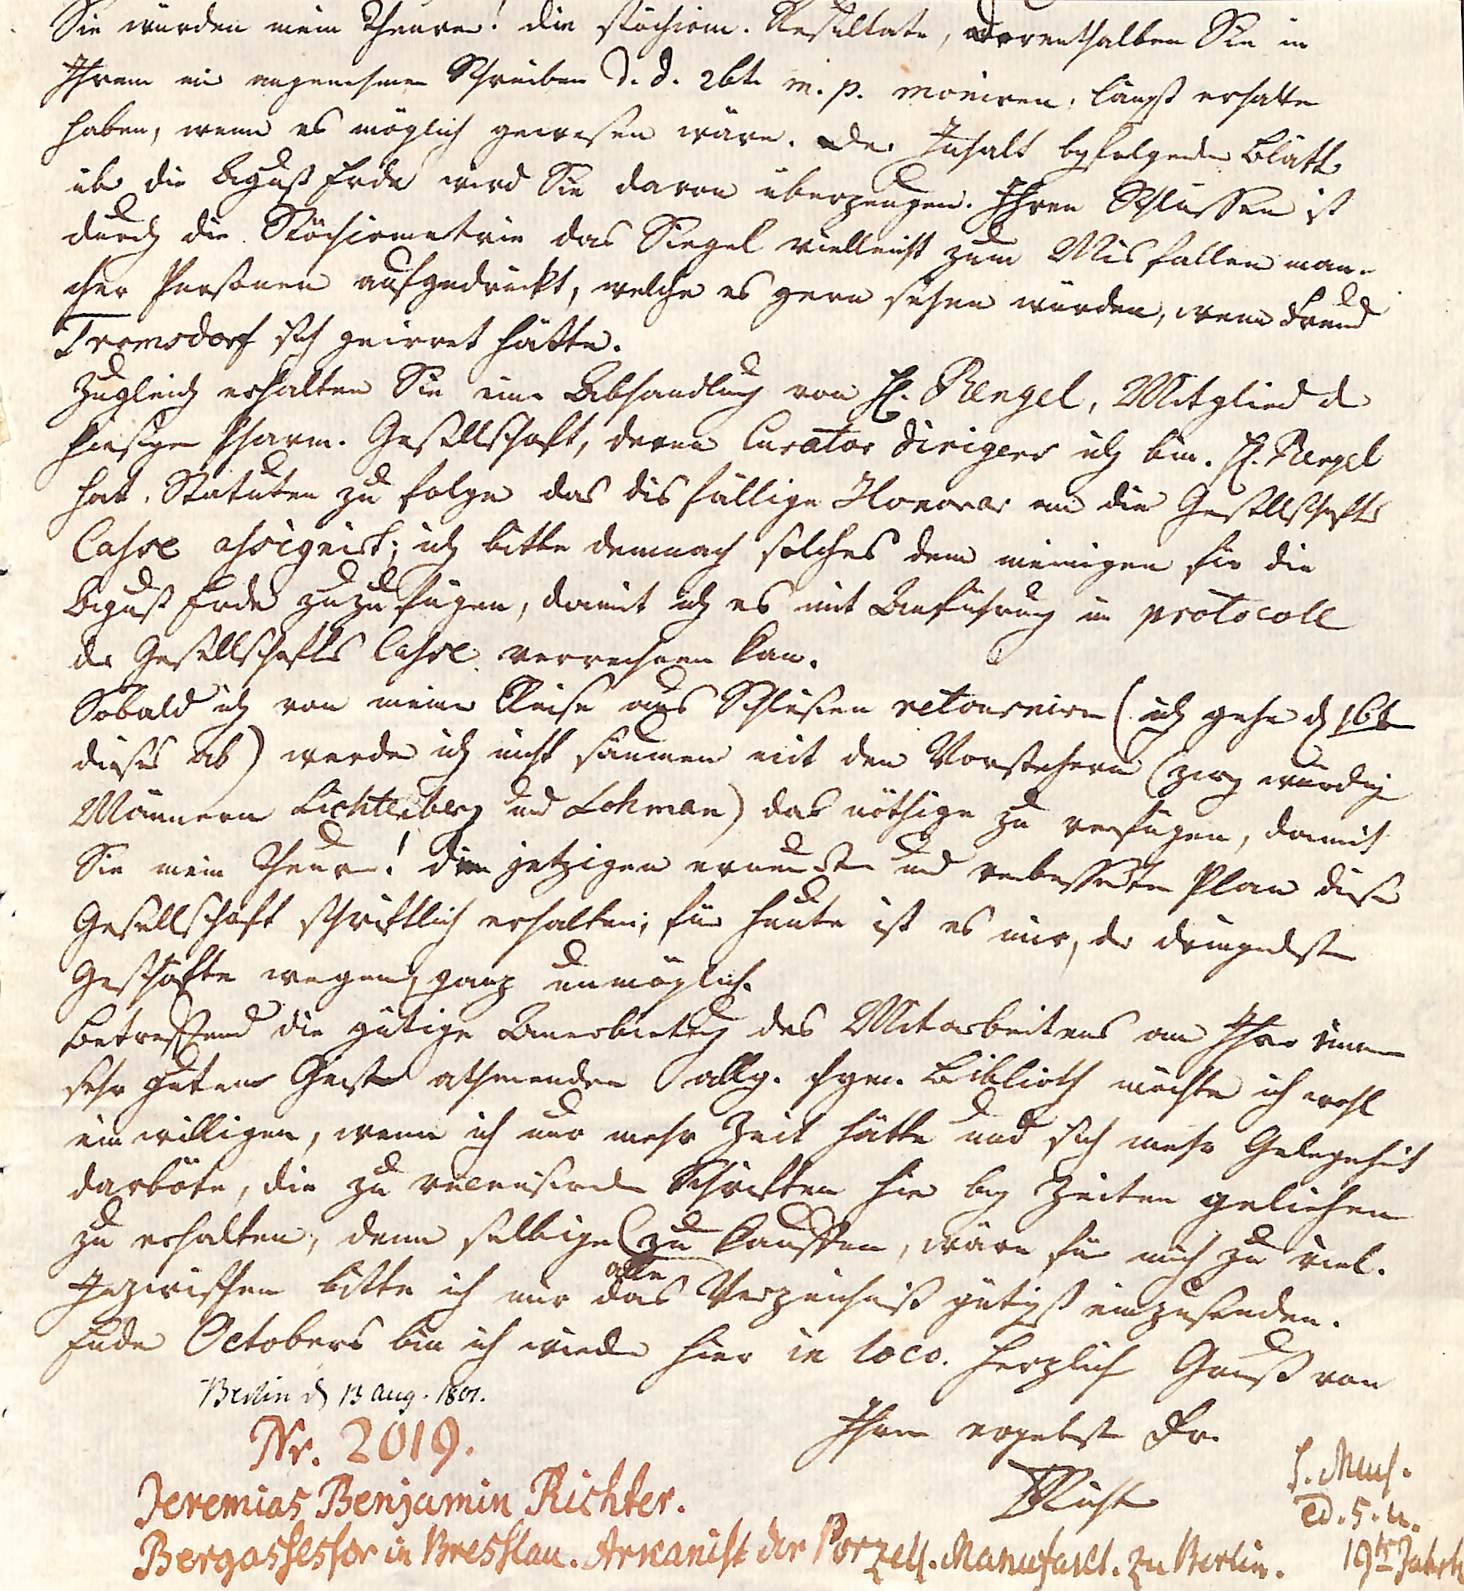 Sie würden mein Theurer! die stöchiom. Resultate, derenthalben Sie in
Ihrem mir angenehmen Schreiben d. d. 26t. m. p. moniren, längst erhalten
haben, wenn es möglich gewesen wäre. Der Inhalt beyfolgender Blätter
über die Agust Erde wird Sie davon überzeugen. Ihren Schlüssen ist
durch die Stöchiometrie das Siegel vielleicht zum Misfallen man-
cher Personen aufgedrückt, welche es gern sehen würden, wenn Freund
Tromsdorf sich geirret hätte.
Zugleich erhalten Sie eine Abhandlung von H. Rengel, Mitglied der
hiesigen Pharm. Gesellschaft, deren Curator dirigens ich bin. H. Rengel
hat, Statuten zu folge das dis fällige Honorar an die Gesellschafts
Casse assignirt; ich bitte demnach solches dem meinigen für die
Agust Erde zuzufügen, damit ich es mit Anführung im protocoll
der Gesellschafts Casse verrechnen kan.
Sobald ich von meiner Reise aus Schlesien retournire (ich gehe d 16t
dieses ab) werde ich nicht säumen mit den Vorstehern (zwey würdigen
Männern Lichtenberg und Lehman) das nöthige zu verfügen, damit
Sie mein Theurer! den jetzigen erneuerten und verbesserten Plan dieser
Gesellschaft schriftlich erhalten; für heute ist es mir, der dringendsten
Geschäfte wegen, ganz unmöglich.
Betreffend die gütige Anerbietung des Mitarbeitens an Ihrer einen
sehr guten Geist athmenden allg. chem. Biblioth möchte ich wohl
ein willigen, wenn ich nur mehr Zeit hätte und sich mehr Gelegenheit
darböte, die zu recensirenden Schriften hier bey Zeiten geliehen
zu erhalten, denn selbige alle zu kauffen, wäre für mich zu viel.
Inzwischen bitte ich nur das Verzeichniß gütigst einzusenden.
Ende Octobers bin ich wieder hier in loco. Herzlich Gruß von
Berlin d 13 Aug. 1801.
Ihrem ergebensten Fr.
Richter
Nr. 2019.
Jeremias Benjamin Richter.
Bergassessor in Bresslau. Arkanist der Porzell. Manufact. zu Berlin.